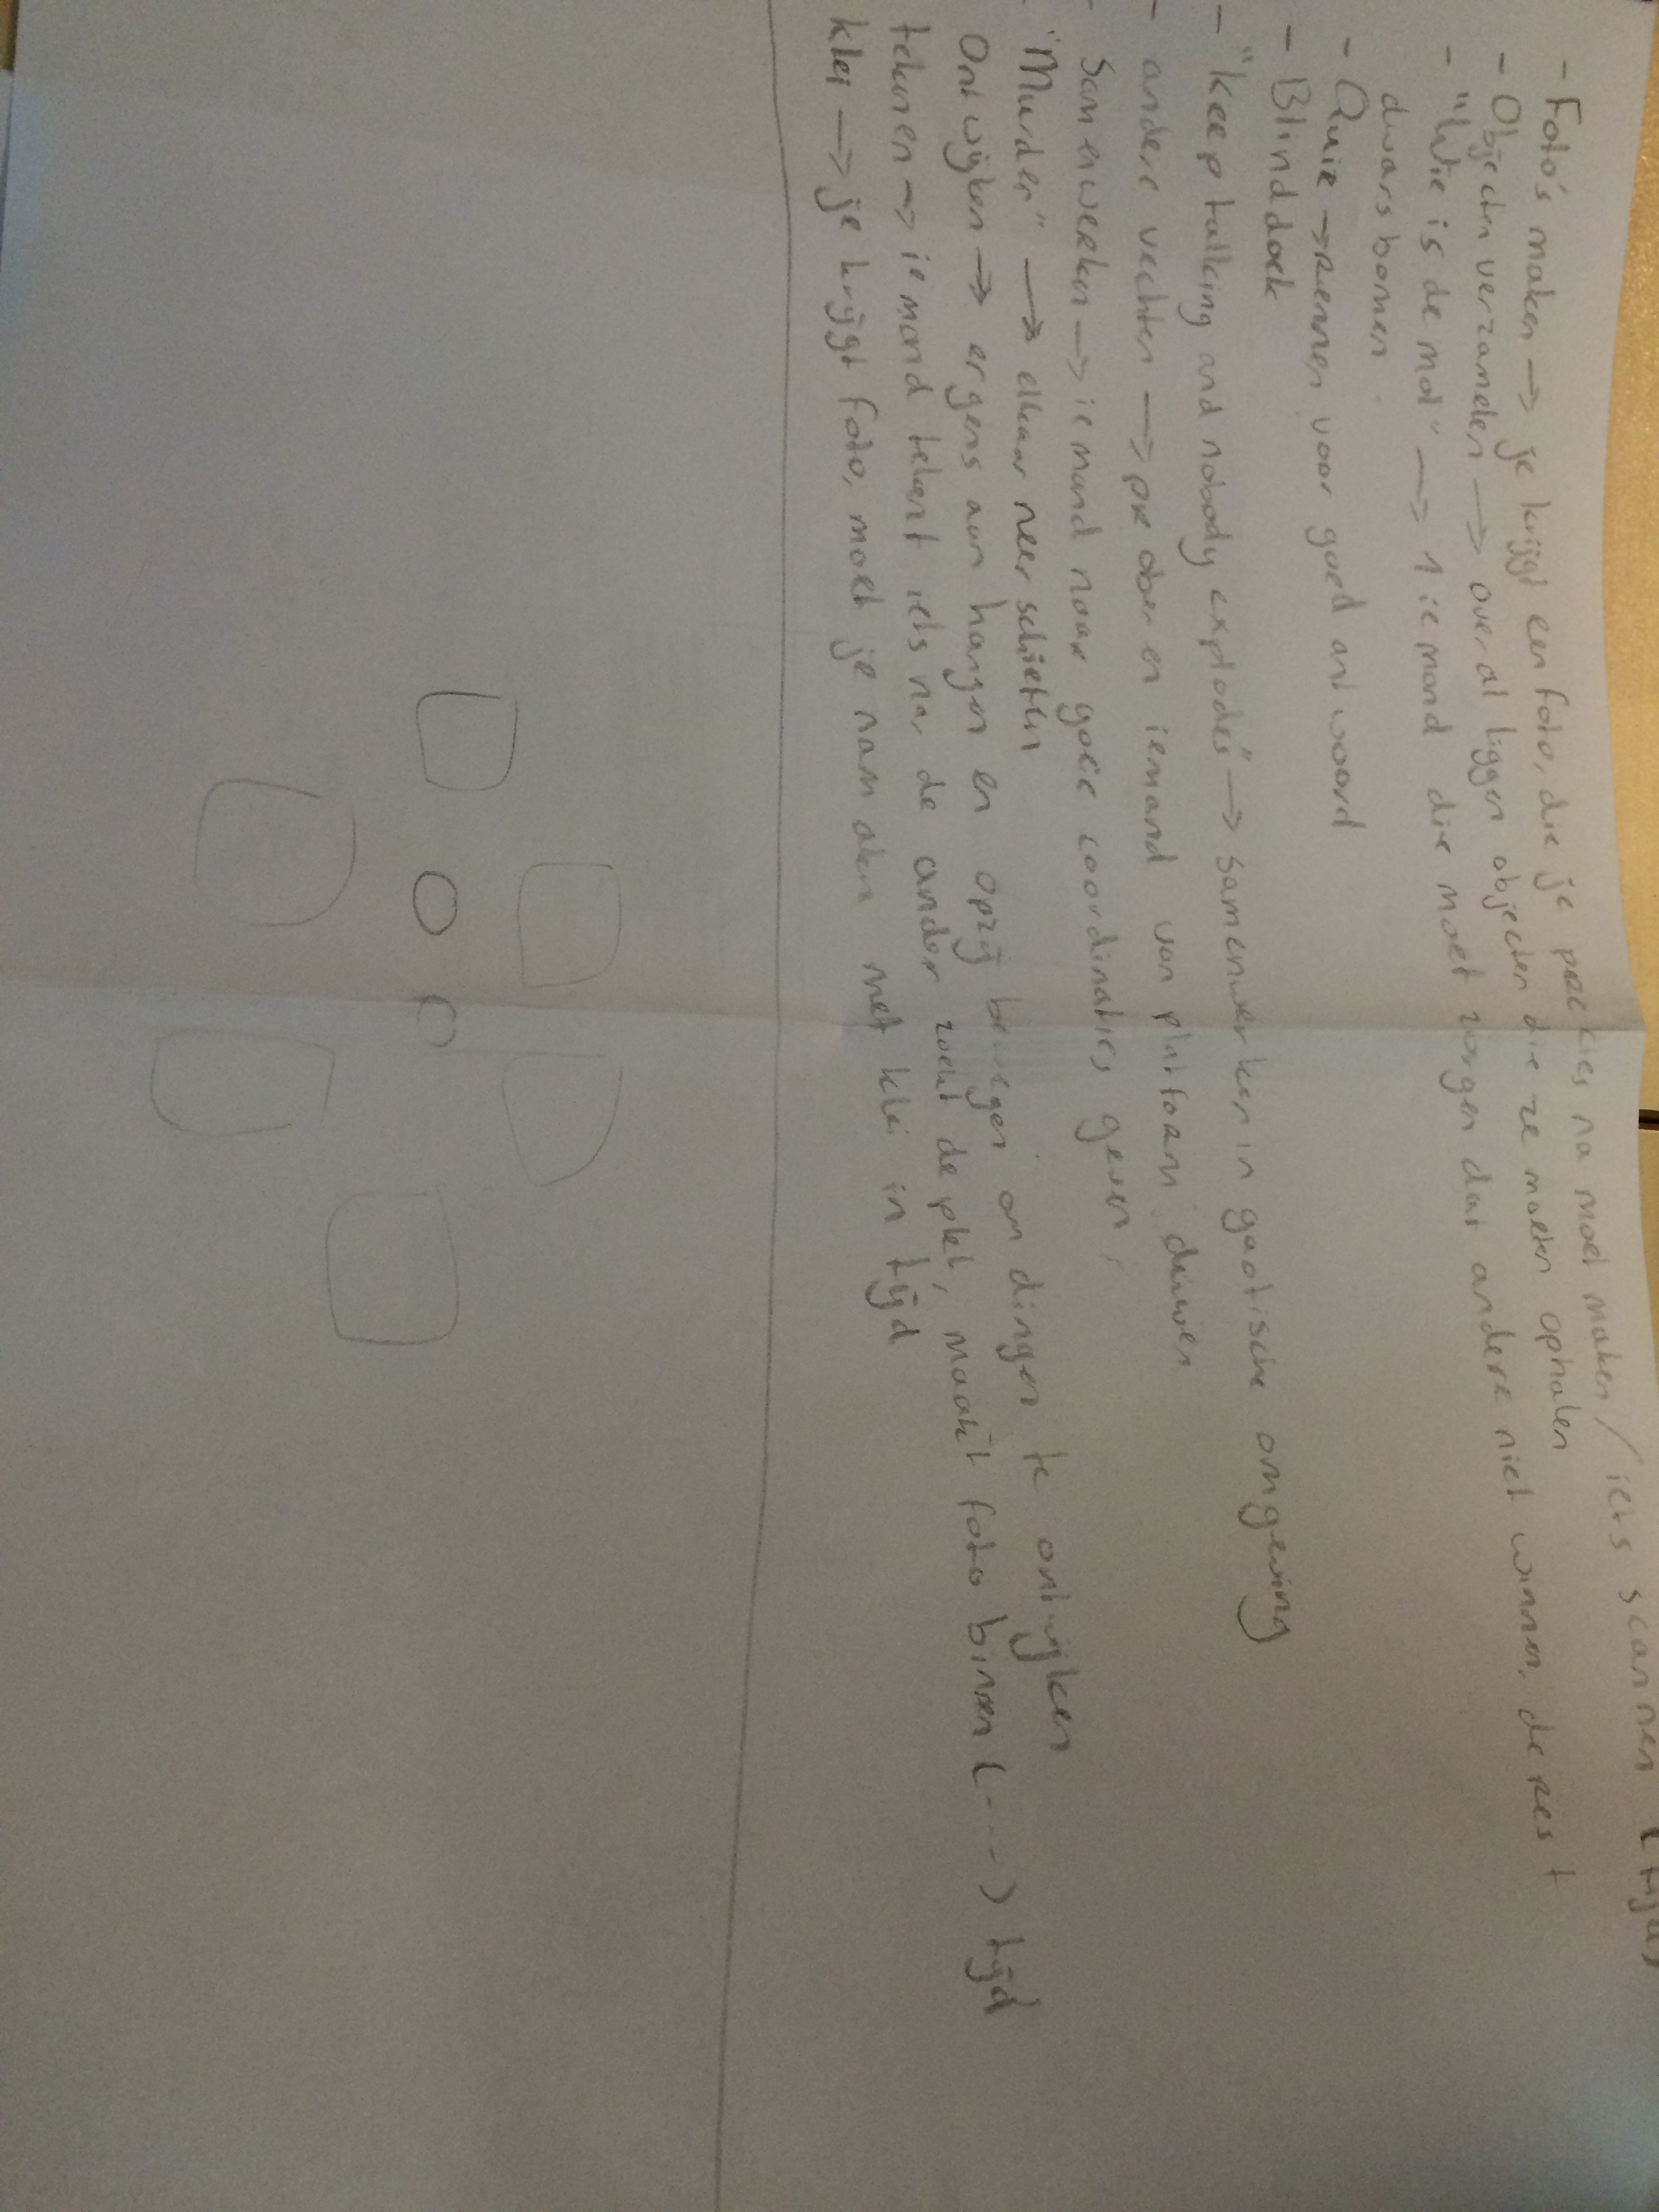 - Foto's maken → je krijgt een foto, die je precies na moet maken / iets scannen (tijd)
- Objecten verzamelen → overal liggen objecten die ze moeten ophalen
- "Wie is de mol" → 1 iemand die moet zorgen dat andere niet winnen, de rest
dwarsbomen.
- Quiz → rennen voor goed antwoord
- Blinddoek
- "keep talking and nobody explodes" → samenwerken in gaotische omgeving
- andere vechten → proberen iemand van platform duwen
- Samenwerken → iemand naar goeie coordinaties geven
- "Murder" → elkaar neerschieten
Ontwijken → ergens aan hangen en opzij bewegen om dingen te ontwijken
tekenen → iemand tekent iets na, de ander zoekt de plek, maakt foto binnen (...) tijd
klei → je krijgt foto, moet je namaken met klei in tijd